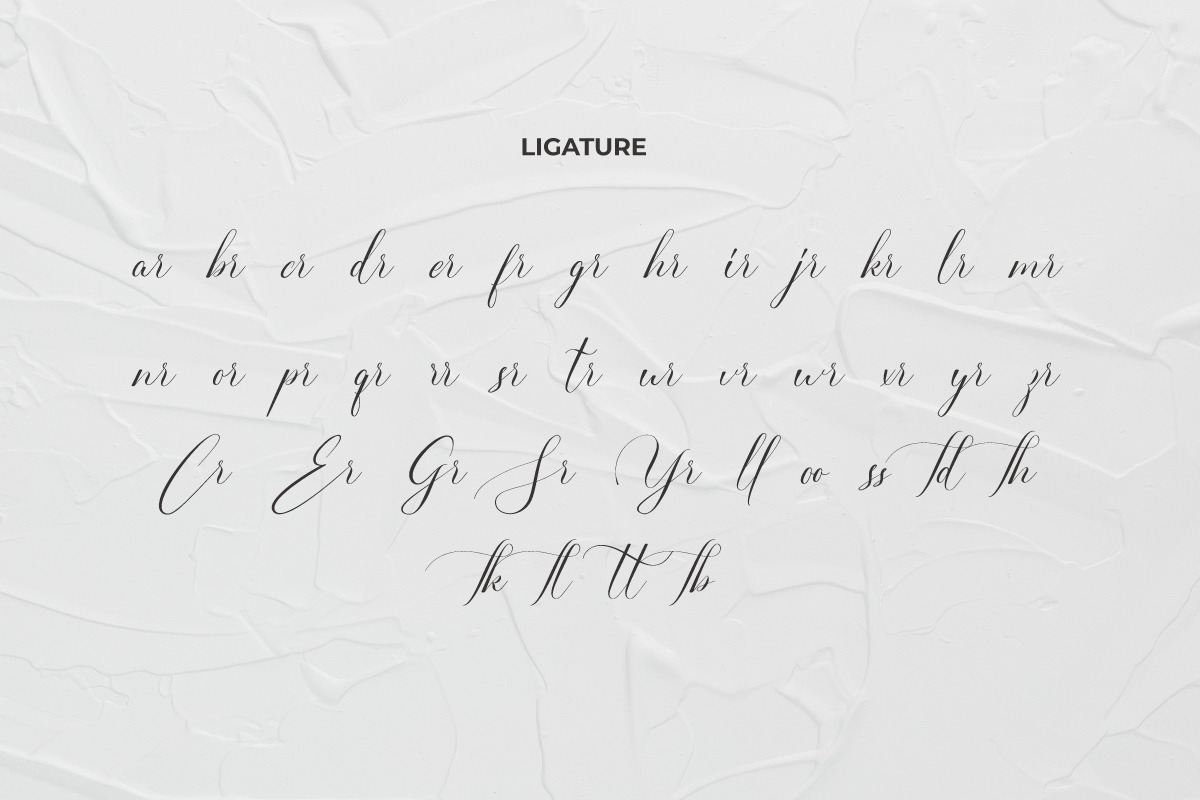 LIGATURE
ar br cr dr er fr gr hr ir jr kr lr mr
nr or pr qr rr sr tr ur vr wr xr yr zr
Cr Er Gr Sr Yr ll oo ss Td Th
Tk Tl tt Tb